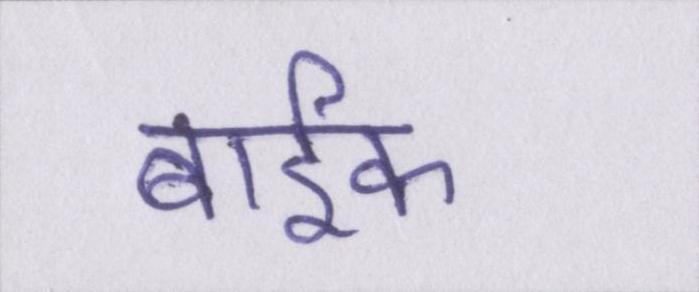 बाईक